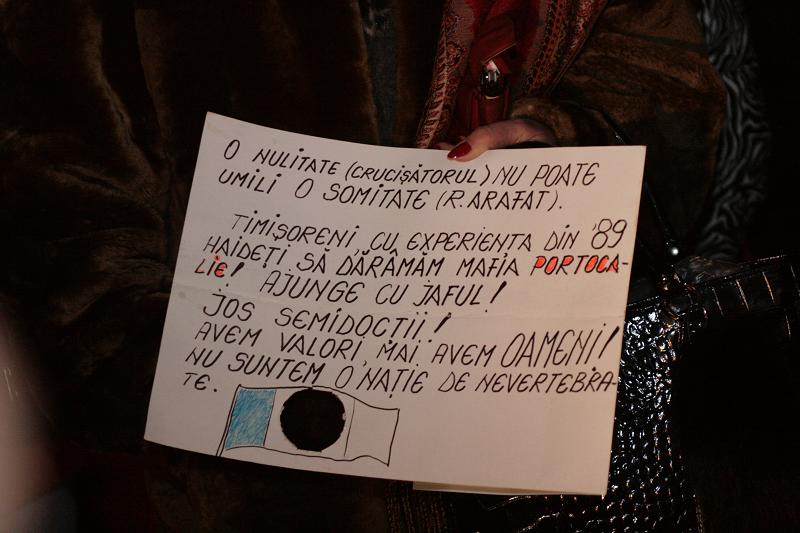 O NULITATE (CRUCIȘĂTORUL) NU POATE
UMILI O SOMITATE (R. ARAFAT).
TIMIȘORENI, CU EXPERIENȚA DIN '89
HAIDEȚI SĂ DĂRÂMĂM MAFIA PORTOCA-
LIE! AJUNGE CU JAFUL!
JOS SEMIDOCȚII!
AVEM VALORI, MAI AVEM OAMENI!
NU SUNTEM O NAȚIE DE NEVERTEBRA-
TE.